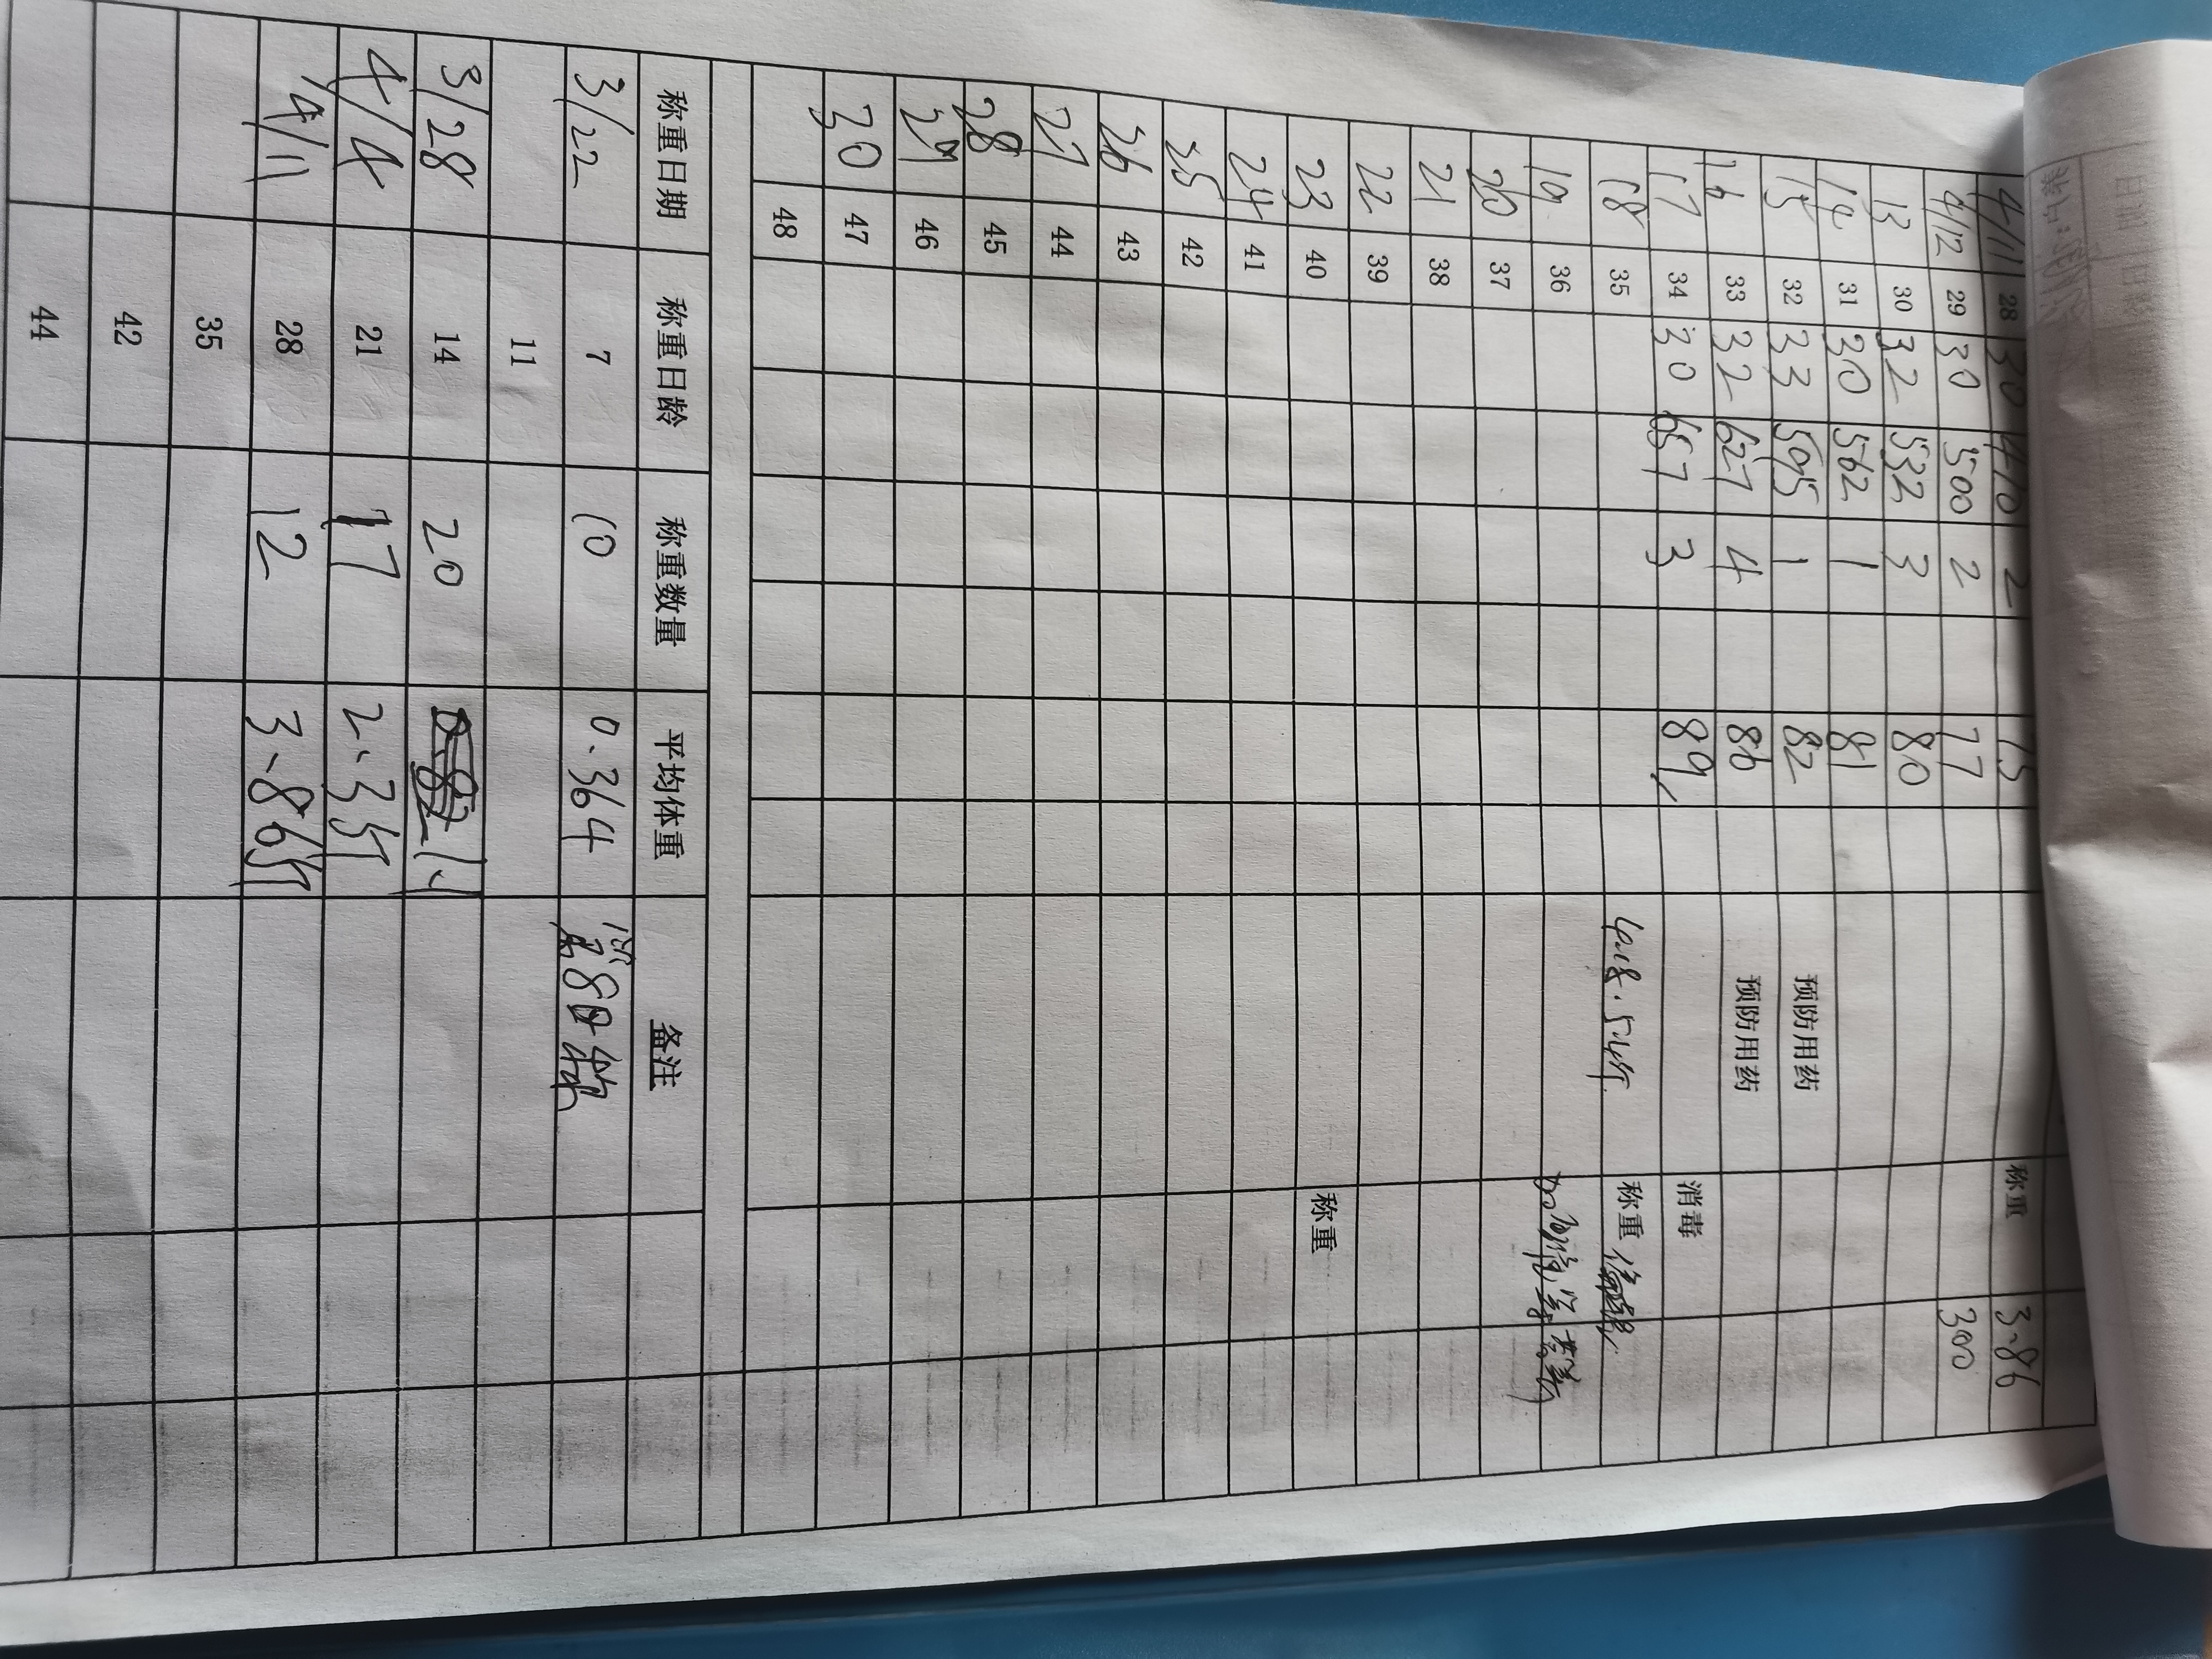 4/11 28 30 470 2 75 称重 3.86
4/12 29 30 500 2 77 300
13 30 32 532 3 80
14 31 30 562 1 81
15 32 33 595 1 82 预防用药
16 33 32 627 4 86 预防用药
17 34 30 657 3 89 消毒
18 35 称重
19 36
20 37
21 38
22 39
23 40 称重
24 41
25 42
26 43
27 44
28 45
29 46
30 47
48
称重日期 称重日龄 称重数量 平均体重 备注
3/22 7 10 0.364
11
3/28 14 20
4/4 21 17 2.35斤
4/11 28 12 3.86斤
35
42
44